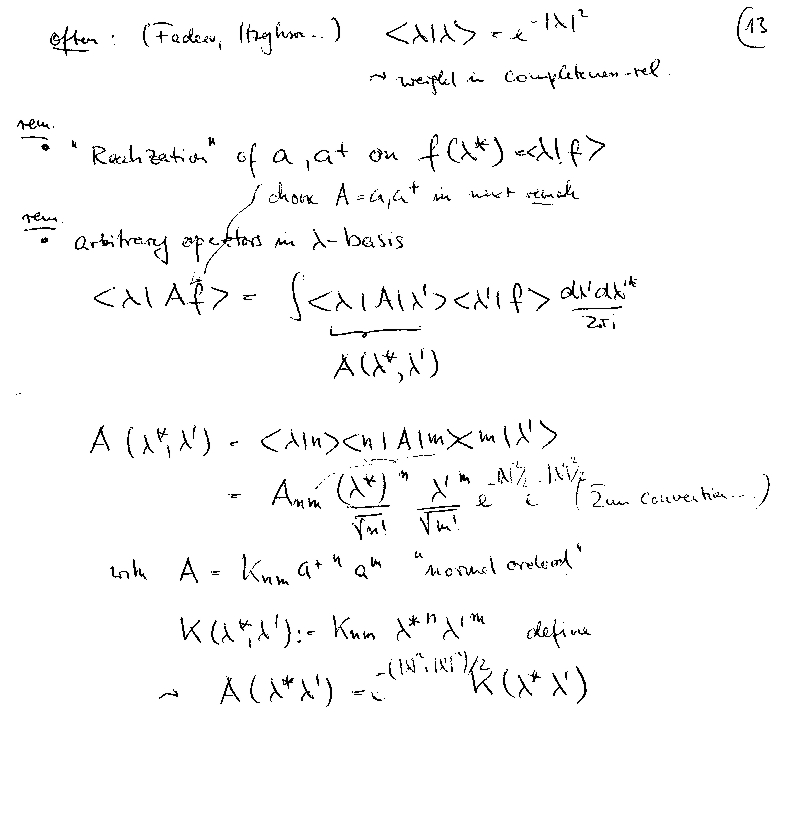 often : (Fadeev, Itzykson...) <λ|λ> = e^{-|λ|²} (13)
~ weight in completeness-rel.
rem.
• "Realization" of a, a⁺ on f(λ*) = <λ|f>
choose A = a, a⁺ in next remark
rem.
• arbitrary operators in λ-basis
<λ|Af> = ∫ <λ|A|λ'><λ'|f> dλ'dλ'*/2πi
A(λ*, λ')
A(λ*, λ') = <λ|n><n|A|m><m|λ'>
= A_{nm} (λ*)^n/√n! λ'^m/√m! e^{-|λ|²/2} e^{-|λ'|²/2} (Sum convention...)
with A = K_{nm} a⁺^n a^m "normal ordered"
K(λ*, λ') := K_{nm} λ*^n λ'^m define
~ A(λ* λ') = e^{-(|λ|²+|λ'|²)/2} K(λ* λ')